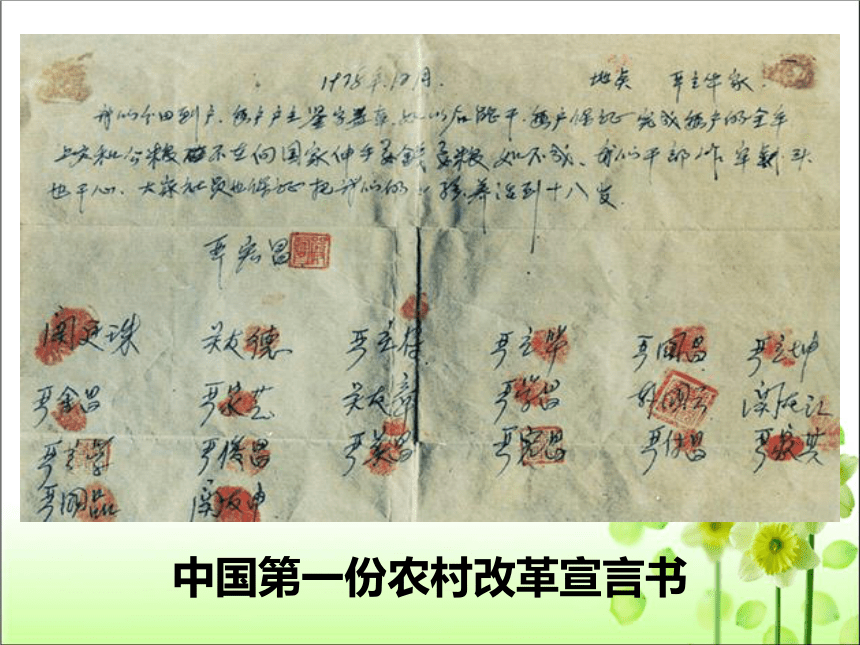 1978年12月. 地点 严立华家.
我们分田到户,每户户主签字盖章,如以后能干,每户保证完成每户的全年
上交和公粮不在向国家伸手要钱要粮如不成,我们干部作牢刹头
也干心,大家社员也保证把我们的小孩养活到十八岁.
严宏昌
関廷珠 关友德 严立符 严立华 严国昌 严立坤
严金昌 严家芝 关友章 严学昌 韩国云 関友江
严立学 严俊昌 严美昌 严宏昌 严付昌 严家其
严国品 関友申
中国第一份农村改革宣言书